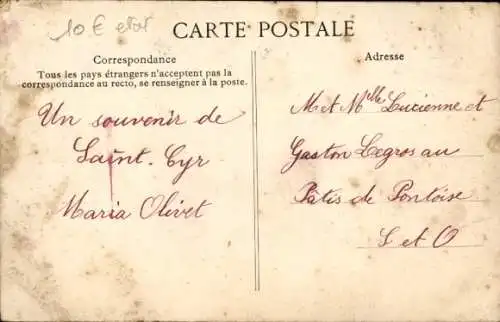 10€
CARTE POSTALE
Correspondance
Tous les pays étrangers n'acceptent pas la
correspondance au recto, se renseigner à la poste.
Un souvenir de
Saint-Cyr
Maria Olivet
Adresse
M et Melle Lucienne et
Gaston Legros au
Pâtis de Pontoise
S et O